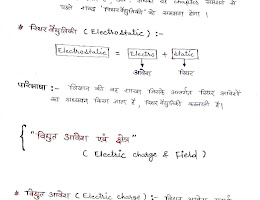 पहले शब्द "स्थिरवैद्युतिकी" को समझना होगा ।
# स्थिरवैद्युतिकी ( Electrostatic ) :-
Electrostatic = Electro + Static
आवेश स्थिर
परिभाषा :- विज्ञान की वह शाखा जिसके अन्तर्गत स्थिर आवेशों
का अध्ययन किया जाता है , स्थिरवैद्युतिकी कहलाती है।
{ "विद्युत आवेश एवं क्षेत्र"
( Electric charge & Field )
# विद्युत आवेश ( Electric charge ) :- विद्युत आवेश